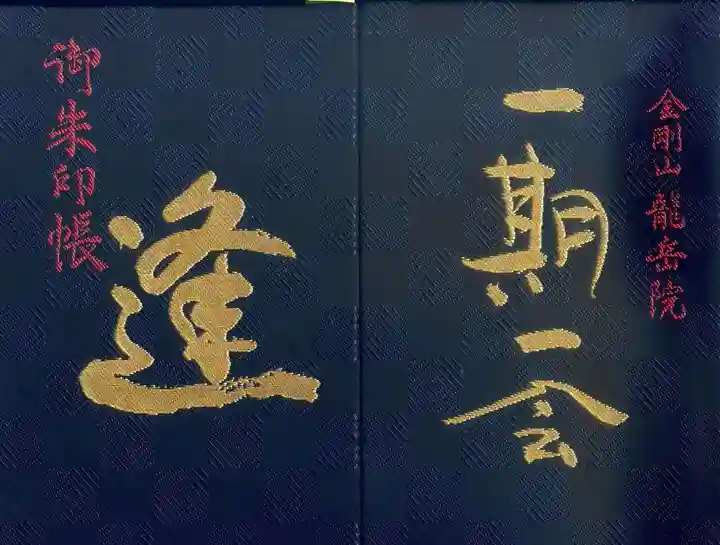 御朱印帳
逢
金剛山龍岳院
一期一会